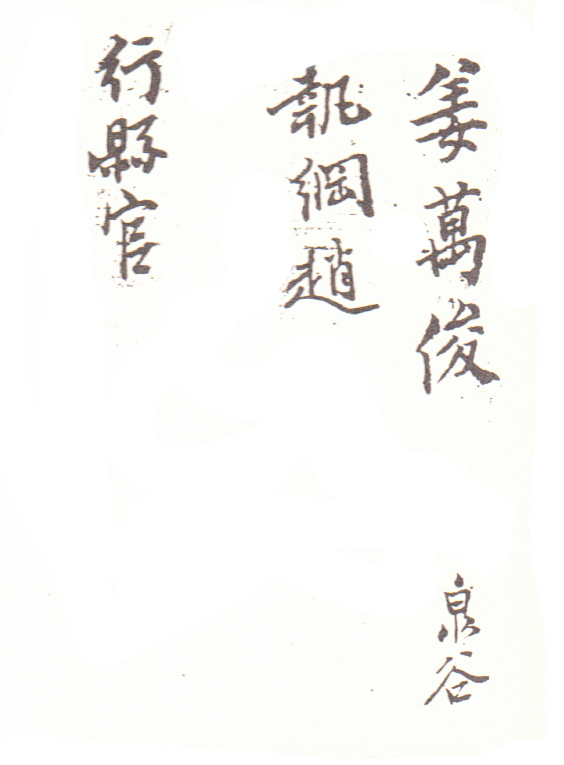 姜萬俊
泉谷
執綱趙
行縣官